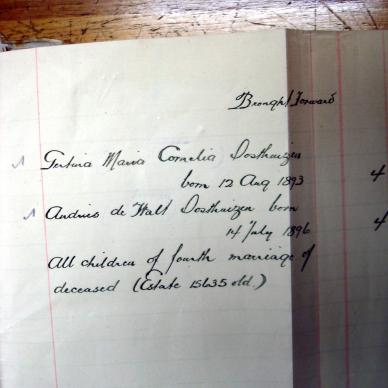 Brought Forward
Gertina Maria Cornelia Oosthuizen
born 12 Aug 1893
4
Andries de Walt Oosthuizen born
14 July 1896
4
All children of fourth marriage of
deceased (Estate 15635 old.)